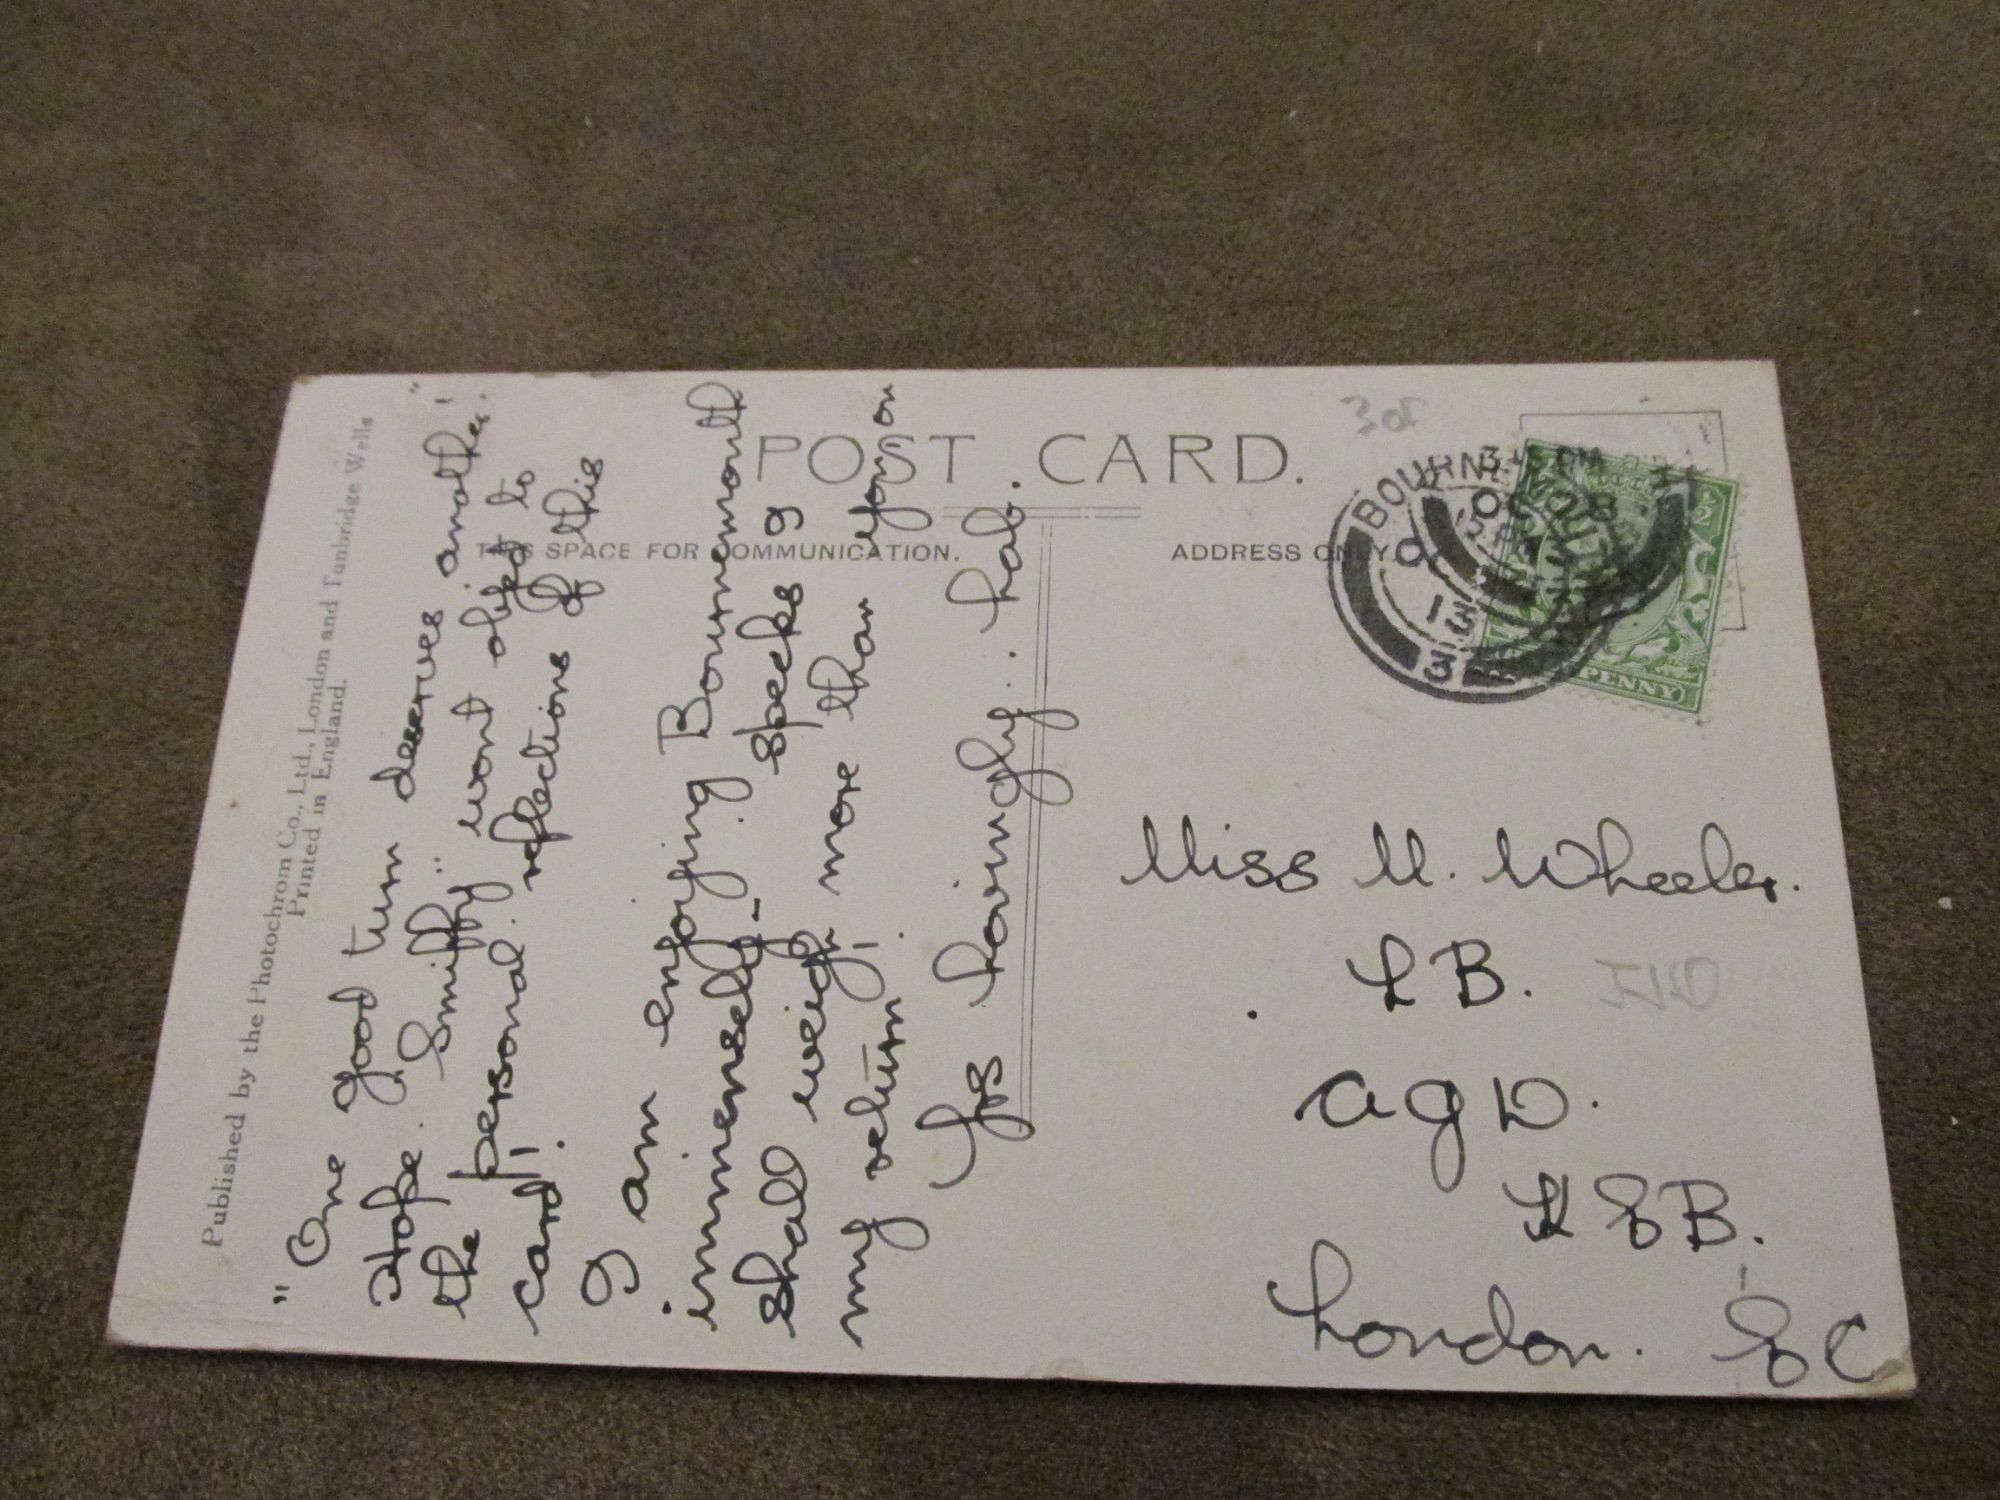 Published by the Photochrom Co., Ltd., London and Tunbridge Wells
Printed in England.
POST CARD.
THIS SPACE FOR COMMUNICATION.
ADDRESS ONLY.
"One good turn deserves another"
Hope "Smiffy" wont object to
the personal reflections of this
card!
I am enjoying Bournemouth
immensely - specks I
shall weigh more than you on
my return!
Yrs lovingly. Lab.
BOURNEMOUTH
3 15 PM
OC 28
PENNY
Miss M. Wheeler.
L B.
A G D.
L S B.
London. S C